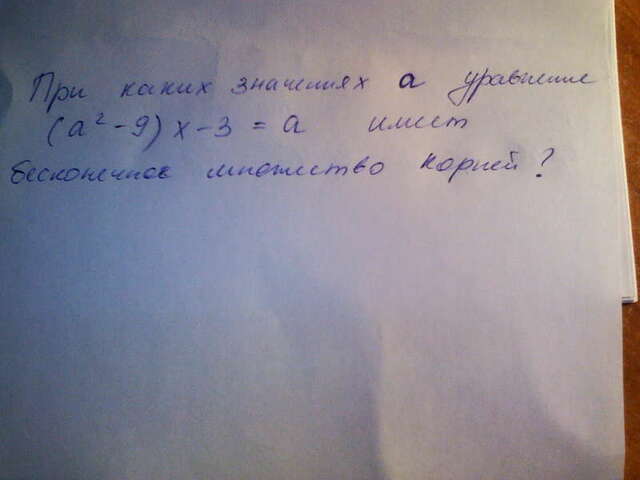 При каких значениях а уравнение
(a² - 9) x - 3 = a имеет
бесконечное множество корней?